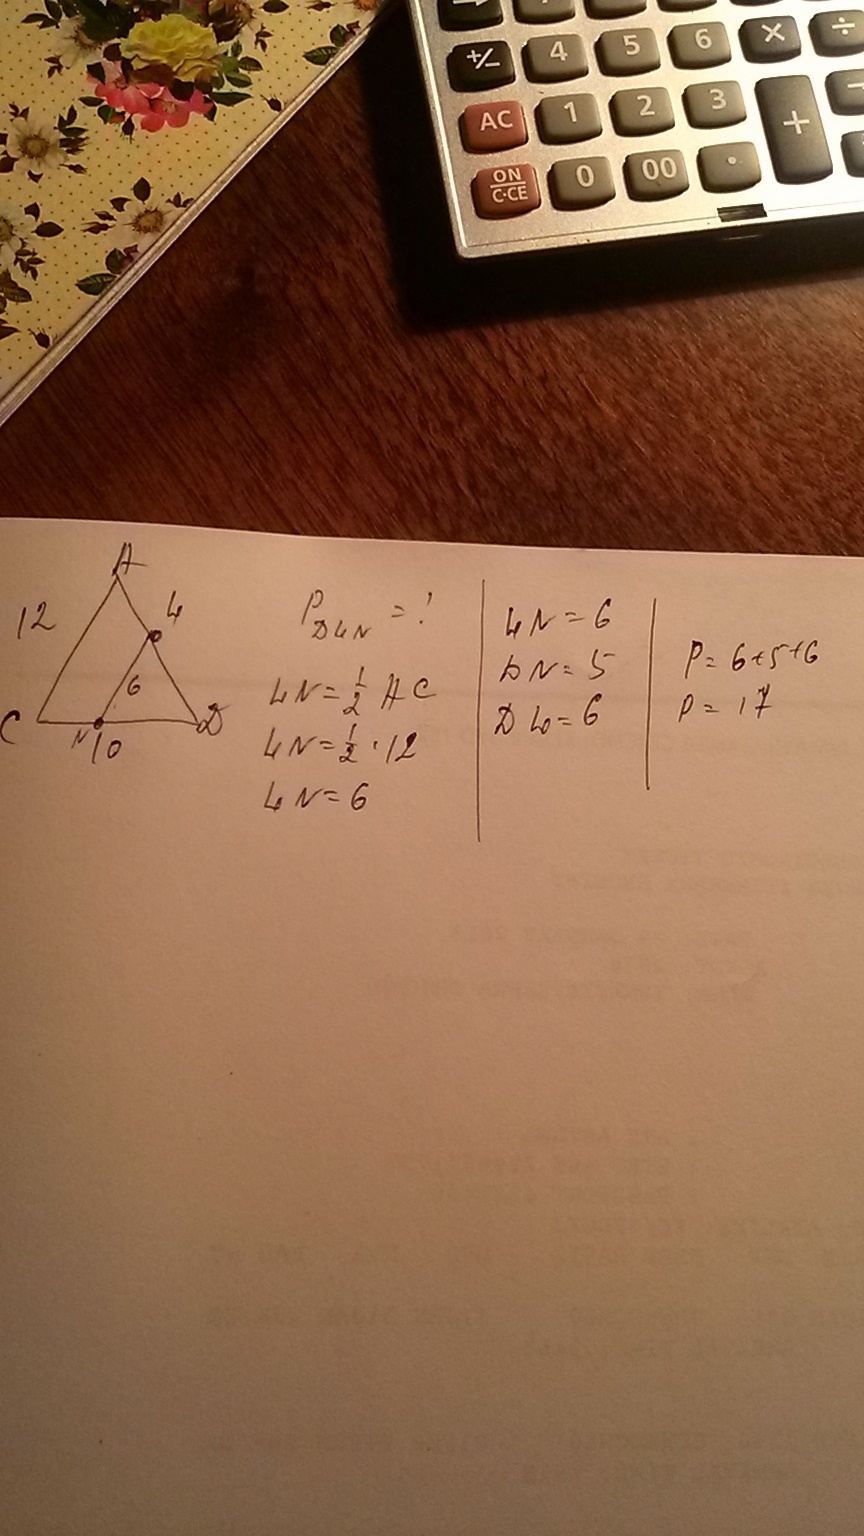 +/- 4 5 6 × ÷
AC 1 2 3 +
ON
C·CE 0 00 ·
A
12
4
6
C N 10 D
P D4N = ?
4N = 1/2 AC
4N = 1/2 · 12
4N = 6
4N = 6
DN = 5
D4 = 6
P = 6+5+6
P = 17